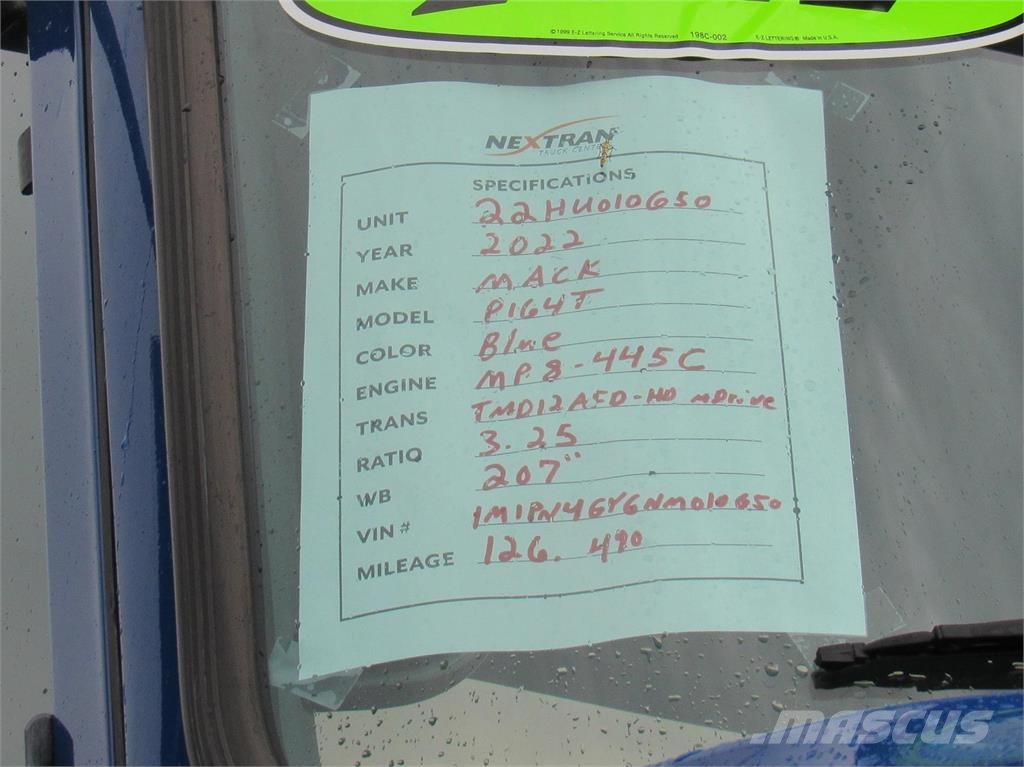 © 1999 E-Z Lettering Service All Rights Reserved 198C-002 E-Z LETTERING® Made in U.S.A.
NEXTRAN
TRUCK CENTERS
SPECIFICATIONS
UNIT 22HU010650
YEAR 2022
MAKE MACK
MODEL PI64T
COLOR Blue
ENGINE MP8-445C
TRANS TMD12AFD-HD mDrive
RATIO 3.25
WB 207"
VIN # 1M1PN4GY6NM010650
MILEAGE 126.490
MASCUS